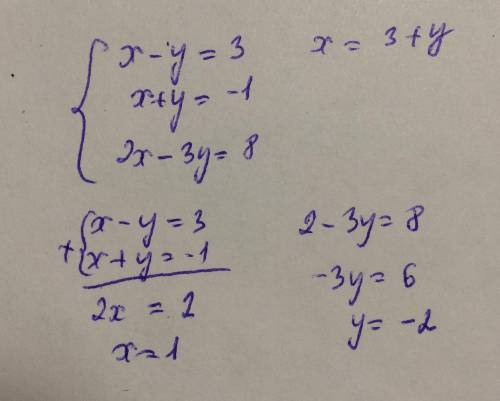 x - y = 3
x + y = -1
2x - 3y = 8
x = 3 + y
x - y = 3
+ x + y = -1
2x = 2
x = 1
2 - 3y = 8
-3y = 6
y = -2